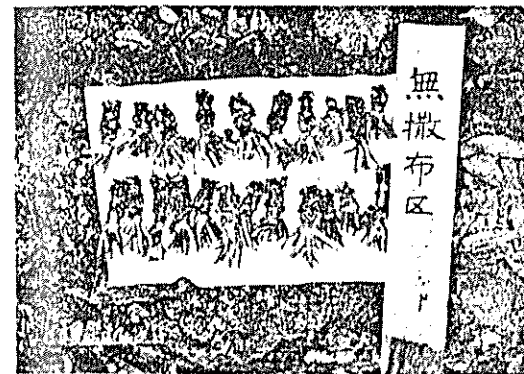 無撒布区